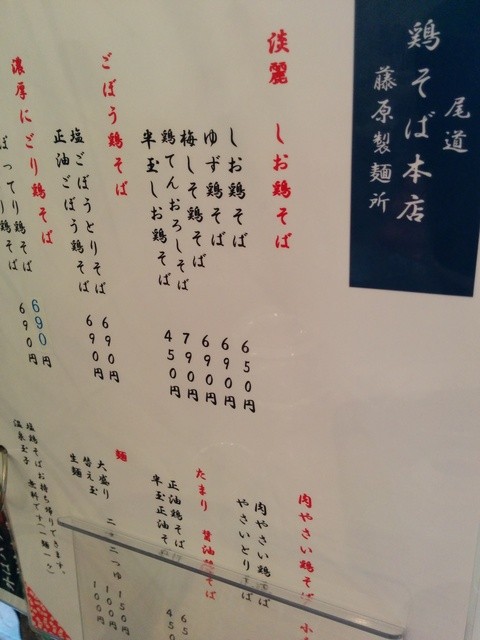 尾道
鶏そば本店
藤原製麺所
淡麗 しお鶏そば
しお鶏そば 650円
ゆず鶏そば 690円
梅しそ鶏そば 690円
鶏てんおろしそば 790円
半玉しお鶏そば 450円
ごぼう鶏そば
塩ごぼうとりそば 690円
正油ごぼう鶏そば 690円
濃厚にごり鶏そば
690円
690円
肉やさい鶏そば
肉やさい鶏そば
やさいとりそば
たまり 醤油鶏そば
正油鶏そば
半玉正油そ
麺
大盛り 150円
替え玉 100円
生麺 100円
塩鶏そばお持ち帰りできます。
温泉玉子 無料です